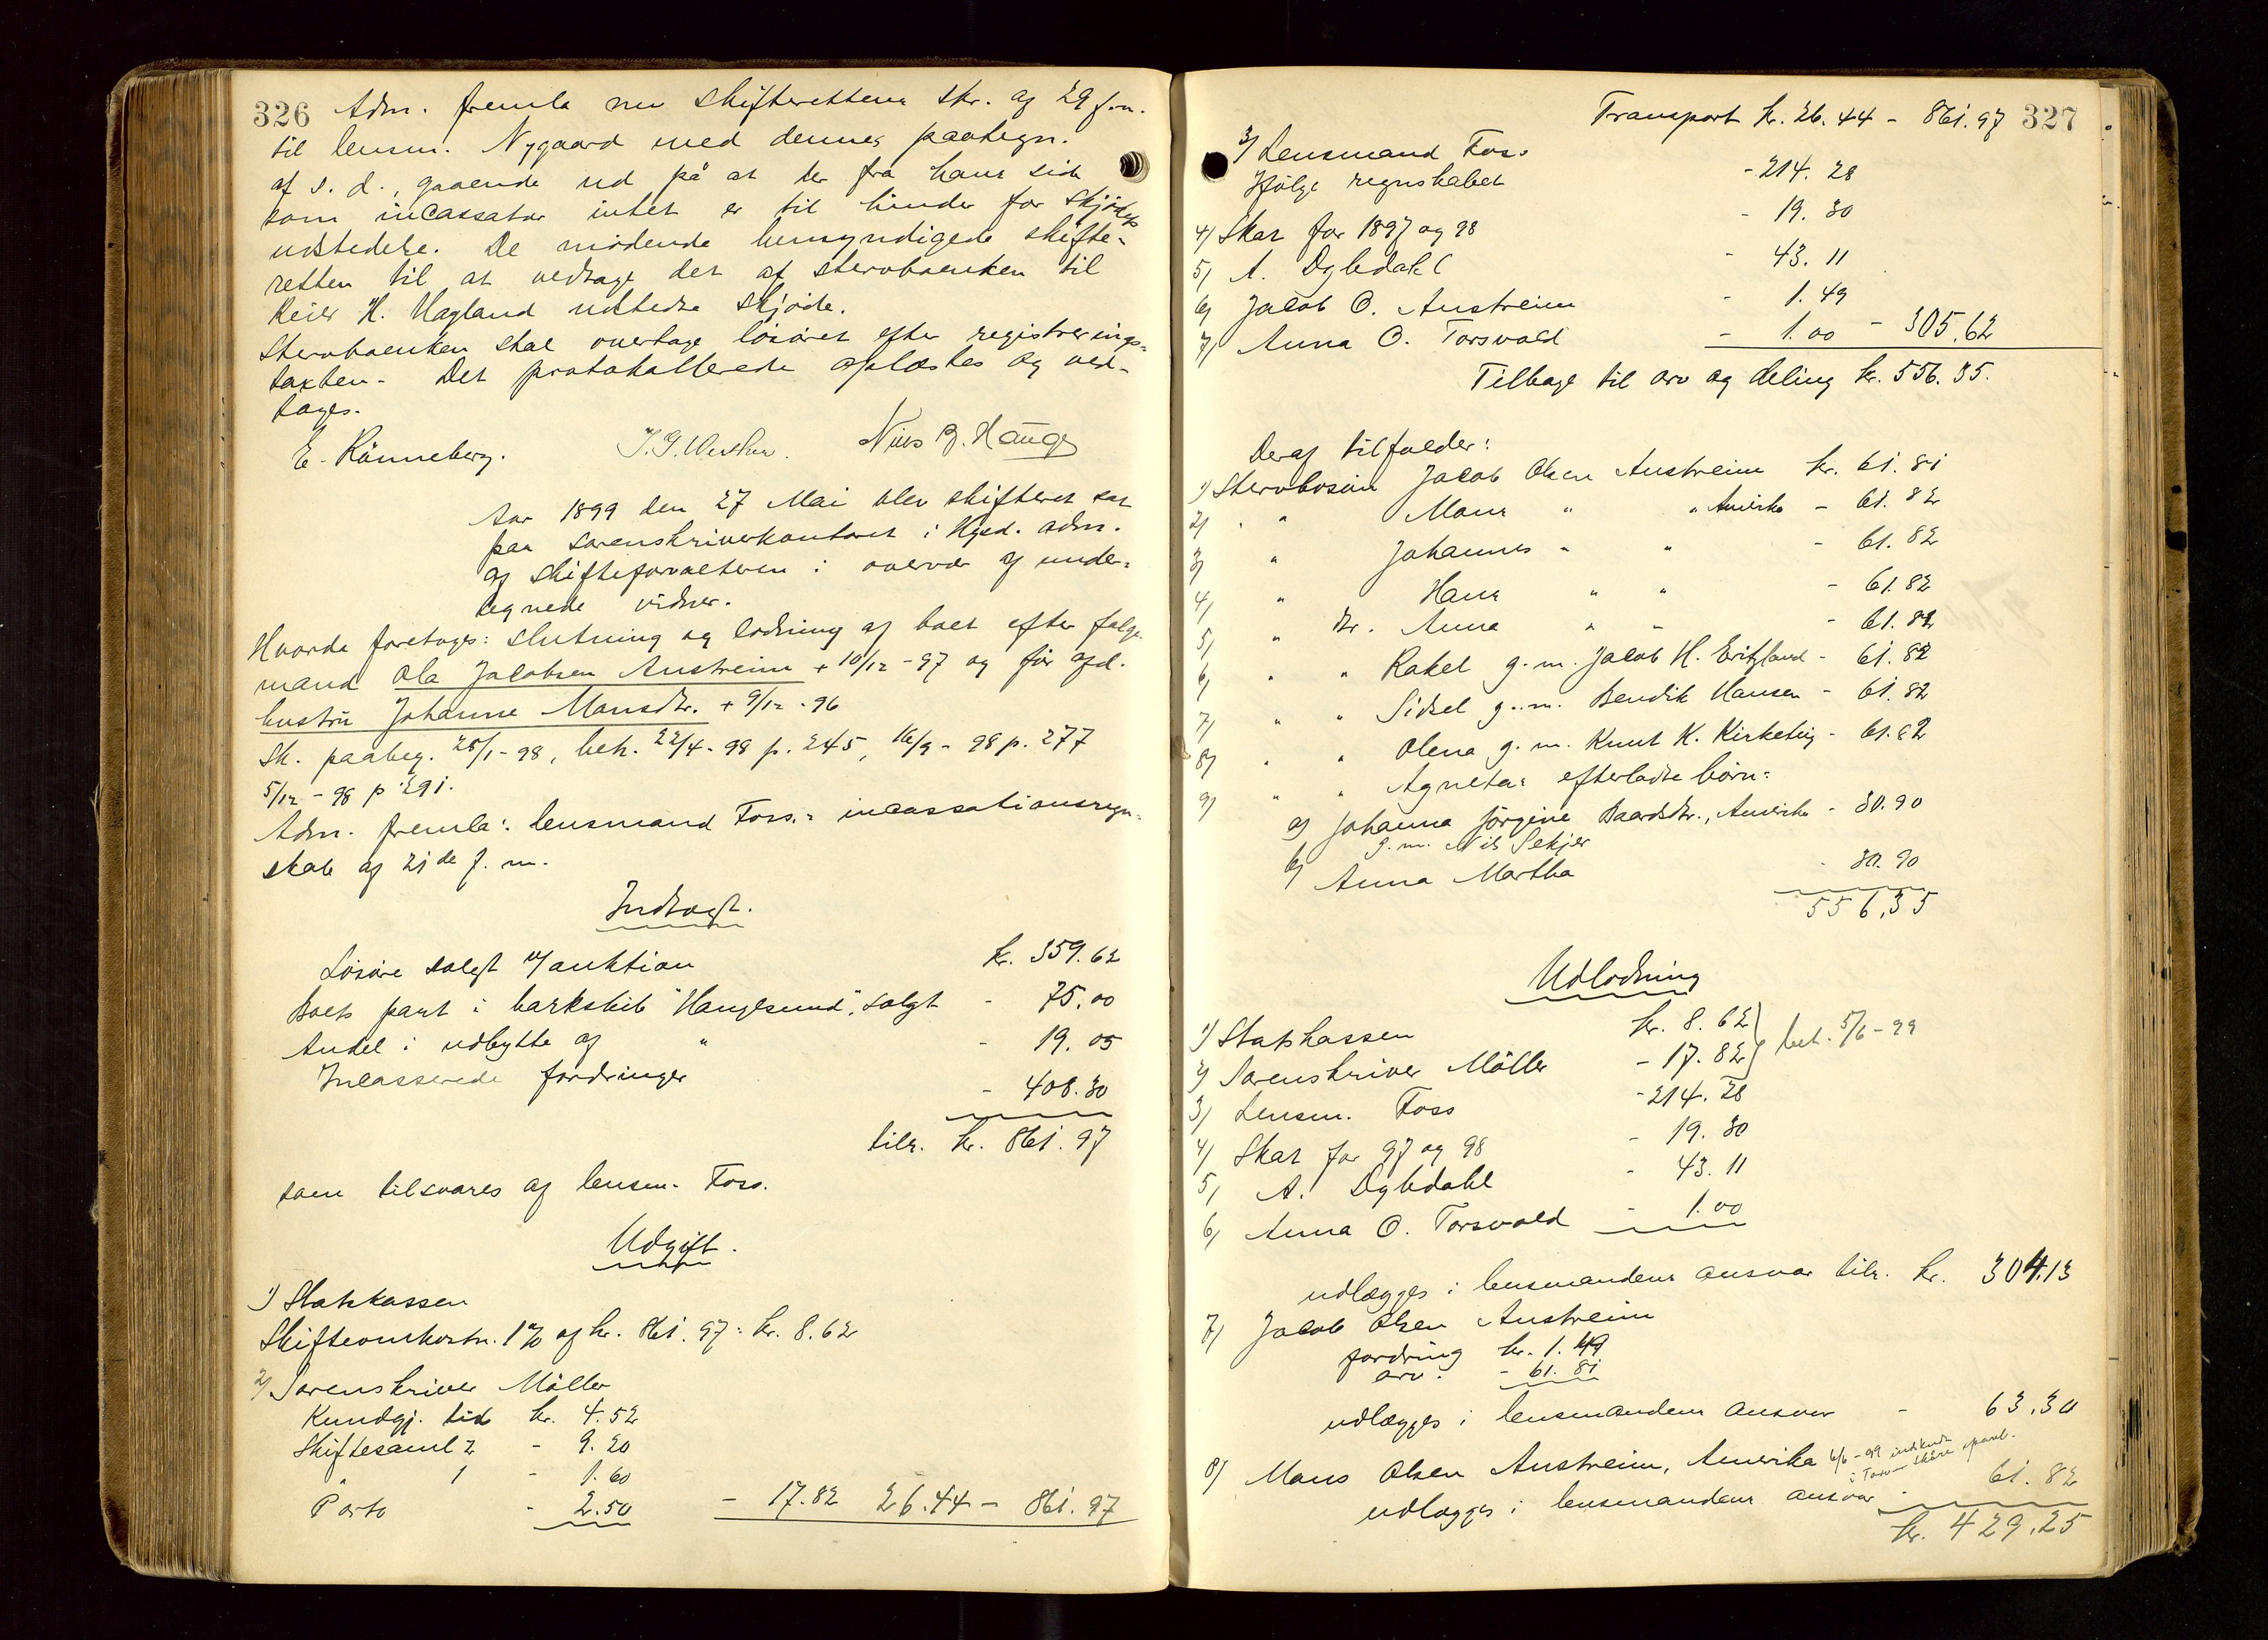 326 Adm. fremla nu skifterettens skr. af 29 f.m.
til lensm. Nygaard med dennes paategn.
af s. d., gaaende ud på at der fra hans side
som incassator intet er til hinder for skjödets
udstedelse. De mödende bemyndigede skifte-
retten til at vedtage det af stervboenken til
Reier H. Hagland udstedte skjöde.
Stervboenken skal overtage lösöret efter registrerings-
taxten. Det protokollerede oplæstes og ved-
toges.
E. Rönneberg. Nils B. Hauge
Aar 1899 den 27 Mai blev skifteret sat
paa sorenskriverkontoret i Hgsd. adm.
af skifteforvalteren i overvær af under-
tegnede vidner.
Hvorda foretoges: slutning og lodning af boet efter folge-
mand Ola Jacobsen Austreim + 10/12 - 97 og för afd.
hustru Johanne Mansdtr. + 9/12 - 96
Sk. paabeg. 25/1 - 98, beh. 22/4 - 98 p. 245, 16/9 - 98 p. 277
5/12 - 98 p 291.
Adm. fremla: lensmand Foss.s incassationsregn-
skab af 21de f. m.
Indtægt.
Lösöre solgt v/auktion kr. 359.62
Boets part i barkskib "Hauglesund", solgt - 75.00
Andel i udbytte af " - 19.05
Incasserede fordringer - 408.30
tils. kr. 861.97
som tilsvares af lensm. Foss.
Udgift.
1) Statskassen
Skifteomkostn. 1% af kr. 861.97 = kr. 8.62
2) Sorenskriver Möller
Kundgj. tid kr. 4.52
Skiftesaml 2 - 9.20
" 1 - 1.60
Porto - 2.50 - 17.82 26.44 - 861.97
Transport kr. 26.44 - 861.97 327
3) Lensmand Foss
Ifölge regnskabet - 214.28
4) Skat for 1897 og 98 - 19.30
5) A. Dybdahl - 43.11
6) Jacob O. Austreim - 1.49
7) Anna O. Torsvold - 1.00 - 305.62
Tilbage til arv og deling kr. 556.35.
Deraf tilfalder:
1) Stervbosön Jacob Olsen Austreim kr. 61.81
2) " " Mons " " Amerika - 61.82
3) " Johannes " " - 61.82
4) " Hans " " - 61.82
5) " Dtr. Anna " " - 61.82
6) " " Rakel g. m. Jacob H. Eritzland - 61.82
7) " " Sidsel g. m. Bendik Hansen - 61.82
8) " " Olena g. m. Knut K. Kirketeig - 61.82
9) " " Agnetas efterladte börn:
a) Johanna Jörgine Baardsdtr., Amerika - 30.90
g. m. Nils Sekjer
b) Anna Martha - 30.90
556.35
Udlodning
1) Statskassen kr. 8.62
2) Sorenskriver Möller - 17.82 } bet. 5/6 - 99
3) Lensm. Foss - 214.28
4) Skat for 97 og 98 - 19.30
5) A. Dybdahl - 43.11
6) Anna O. Torsvold - 1.00
udlægges i lensmandens ansvar tils. kr. 304.13
7) Jacob Olsen Austreim
fordring kr. 1.49
arv. - 61.81
udlægges i lensmandens ansvar - 63.30
8) Mons Olsen Austreim, Amerika 6/6 - 99 indsendt
udlægges i lensmandens ansvar - 61.82
kr. 429.25